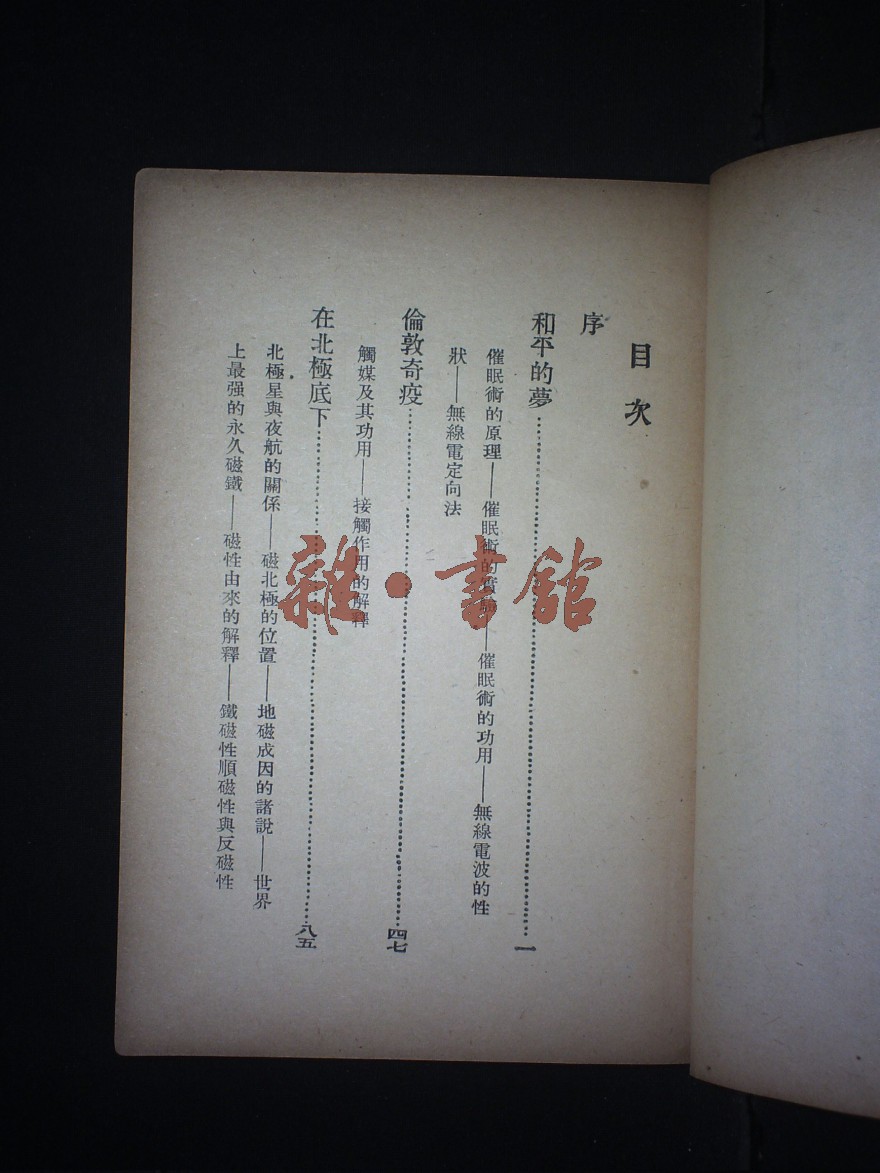 目次
序
和平的夢……一
催眠術的原理——催眠術的實施——催眠術的功用——無線電波的性
狀——無線電定向法
倫敦奇疫……四七
觸媒及其功用——接觸作用的解釋
在北極底下……八五
北極星與夜航的關係——磁北極的位置——地磁成因的諸說——世界
上最强的永久磁鐵——磁性由來的解釋——鐵磁性順磁性與反磁性
雜·書館